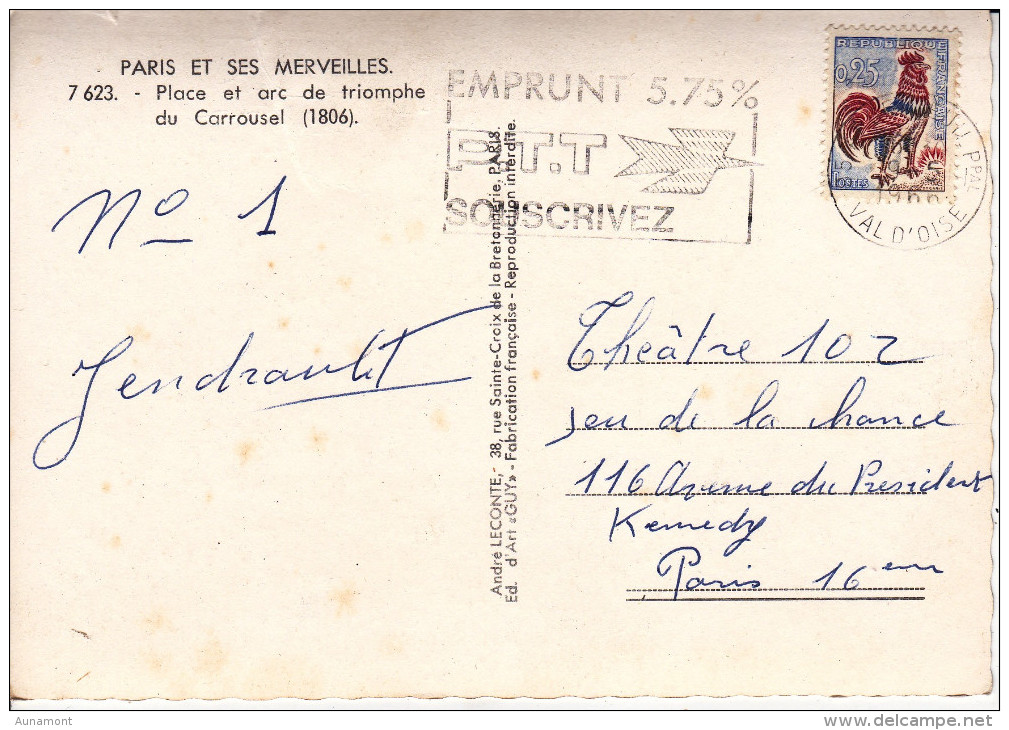 PARIS ET SES MERVEILLES.
7 623. - Place et arc de triomphe
du Carrousel (1806).
EMPRUNT 5.75%
P.T.T
SOUSCRIVEZ
REPUBLIQUE FRANÇAISE
0,25
POSTES
PPAL
VAL D'OISE
N° 1
Jendrault
André LECONTE, 38, rue Sainte-Croix de la Bretonnerie, PARIS.
Ed. d'Art «GUY» - Fabrication française - Reproduction interdite.
Théâtre 102
jeu de la chance
116 Avenue du President
Kennedy
Paris 16 eme
Aunamont
www.delcampe.net